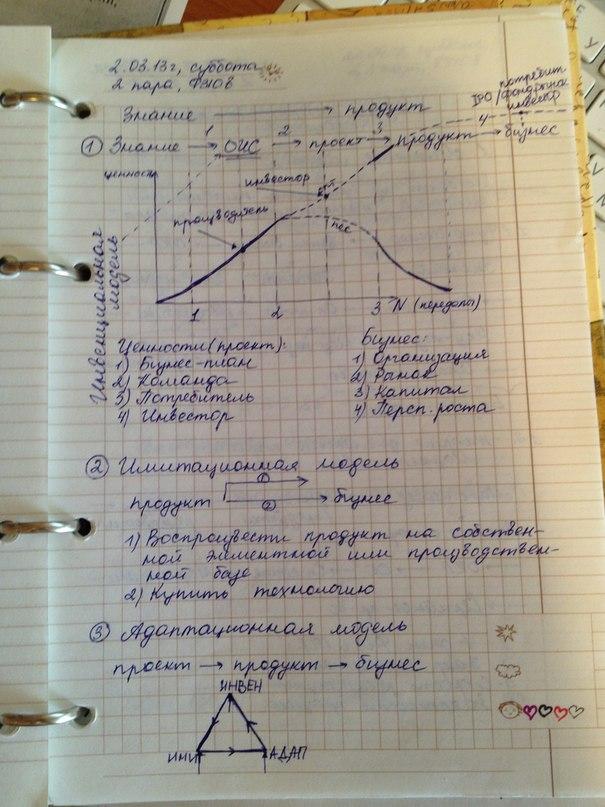 2.03.13г, суббота
2 пара, ФЭОВ
Знание → продукт
потребит
IPO/фондрынок
инвестор
1 Знание 1→ ОИС 2→ проект 3→ продукт 4→ бизнес
ценность
инвестор
производитель
пес
1 2 3 N (переделы)
Инвенциональная
модель
Ценности (проект):
1) Бизнес-план
2) Команда
3) Потребитель
4) Инвестор
Бизнес:
1) Организация
2) Рынок
3) Капитал
4) Персп. роста
2 Имитационная модель
1
продукт → бизнес
2
1) Воспроизвести продукт на собствен-
ной элементной или производствен-
ной базе
2) Купить технологию
3 Адаптационная модель
проект → продукт → бизнес
ИНВЕН
ИМИ АДАП